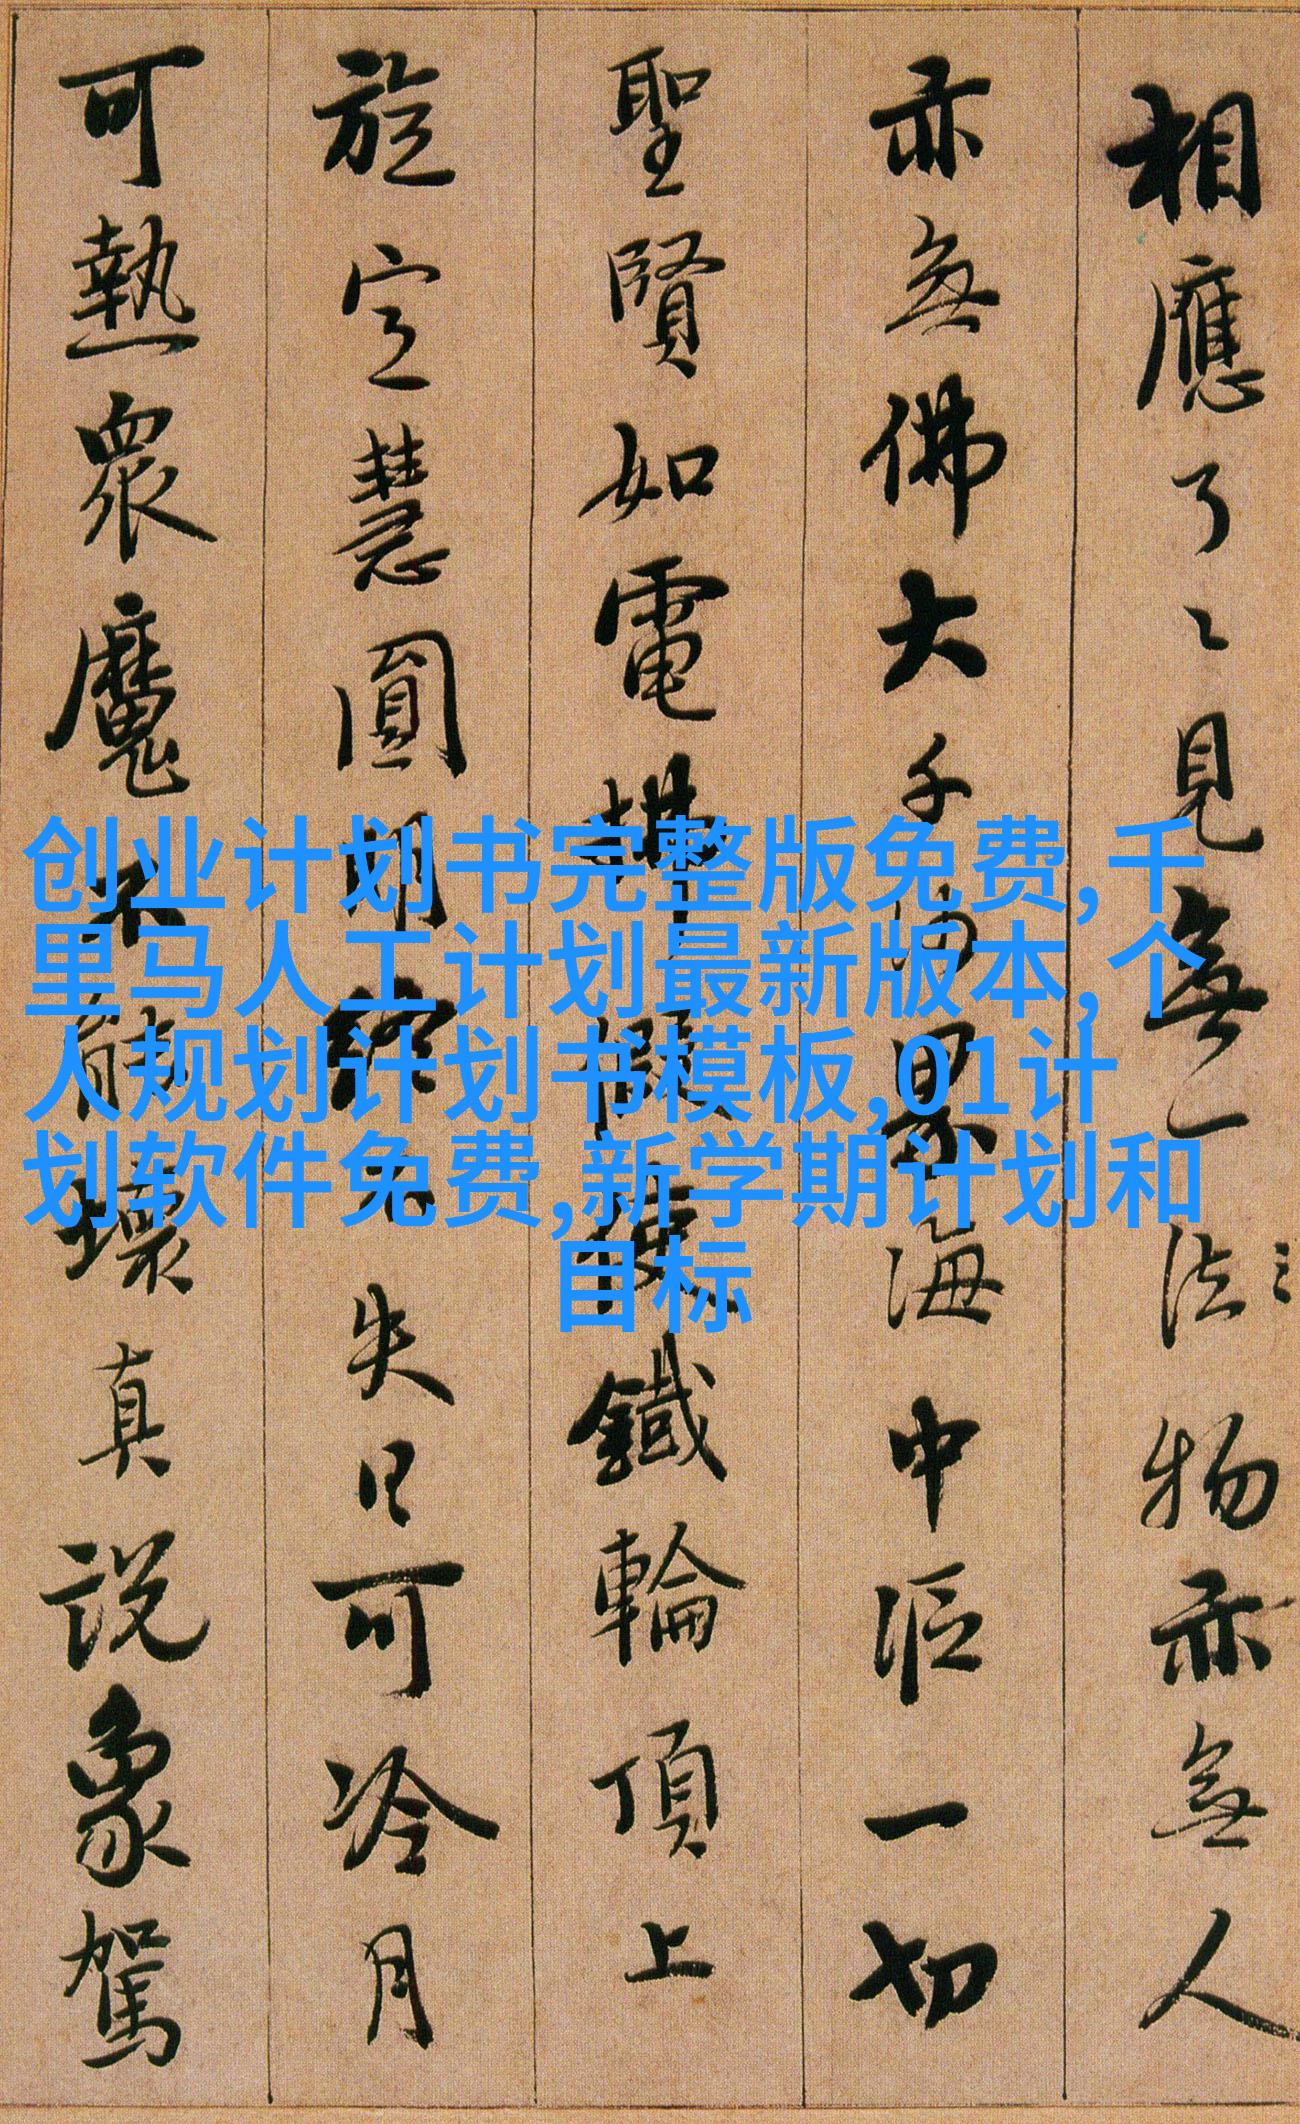 相應了〻見無一法物亦無人
亦無佛大千沙界海中漚一切
聖賢如電拂假使鐵輪頂上
旋定慧圓明終不失日可冷月
可熱眾魔不能壞真説象駕
创业计划书完整版免费,千
里马人工计划最新版本,个
人规划计划书模板,01计
划软件免费,新学期计划和
目标